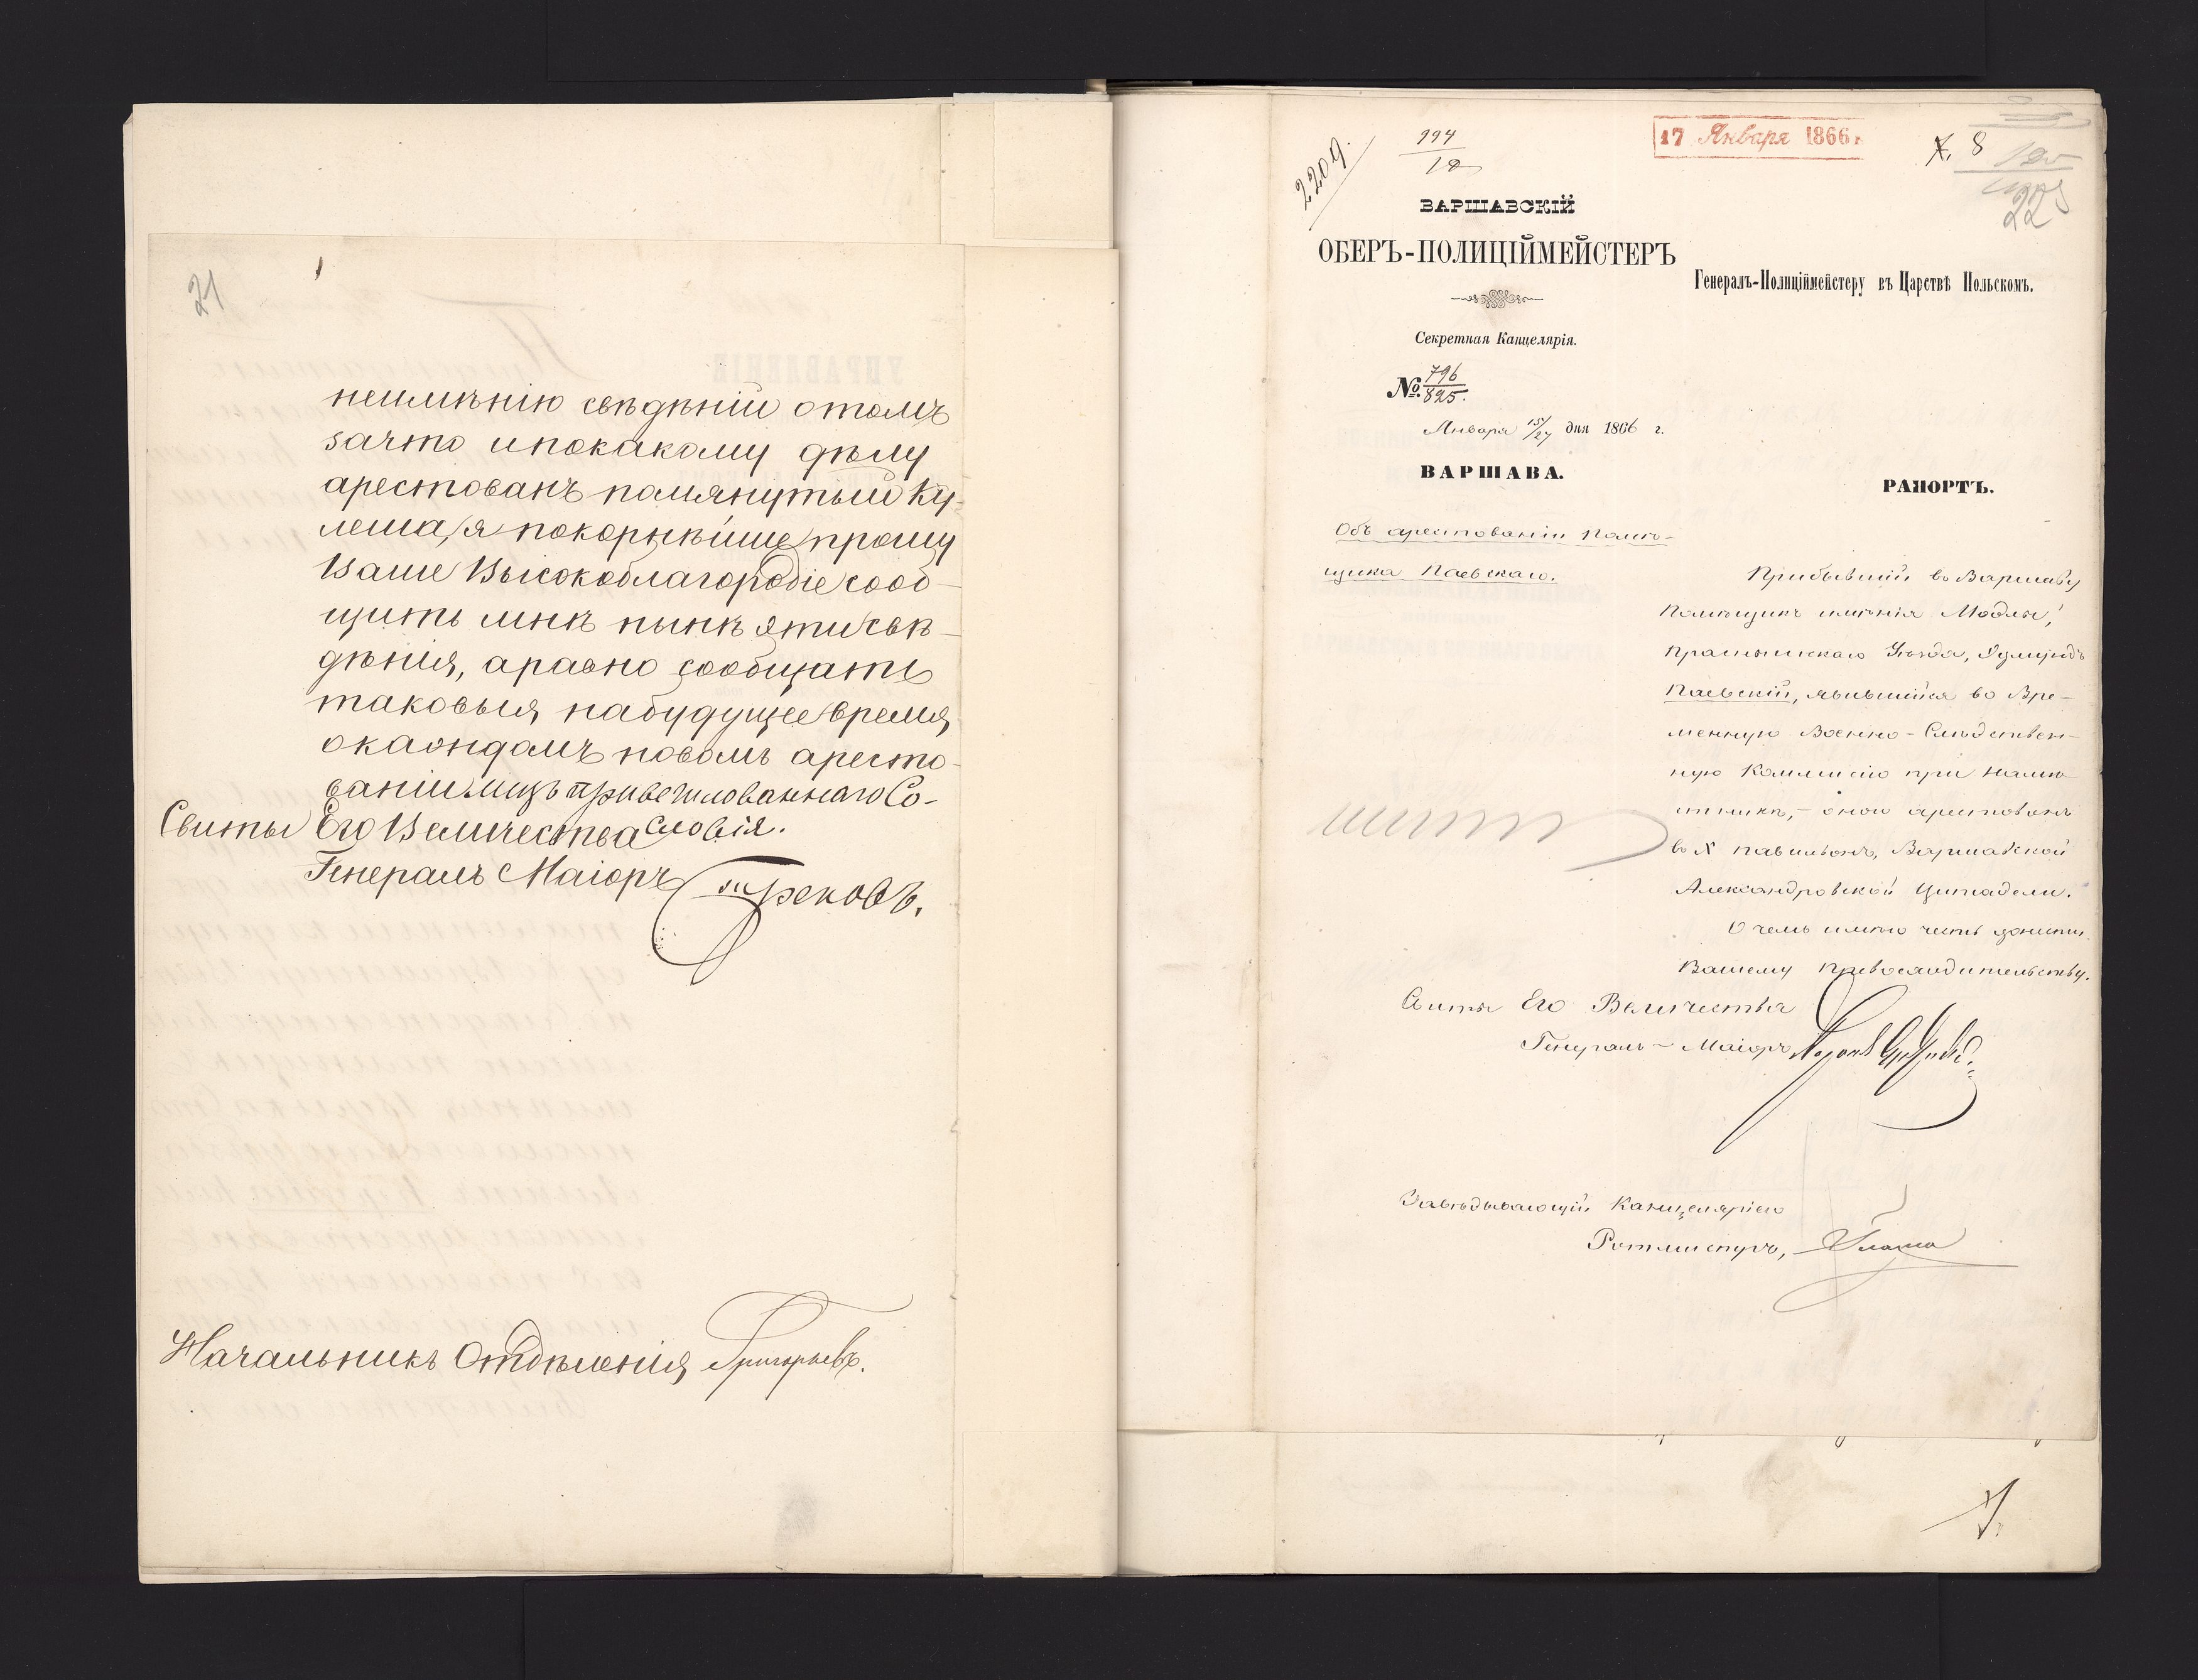 21
неимѣнію свѣдѣній отомъ
зачто ипокакому дѣлу
арестованъ помянутый Ку-
леша, я покорнѣйше прошу
Ваше Высокоблагородіе сооб-
щить мнѣ нынѣ эти свѣ-
дѣнія, аравно сообщать
таковыя набудущее время
окаждомъ новомъ аресто-
ваніи лицъ привеллированнаго Со-
словія.
Свиты Его Величества
Генералъ Маіоръ Треповъ.
Начальникъ Отдѣленія Григорьевъ.
2209.
994
12
17 Января 1866 г.
8
22
ВАРШАВСКІЙ
ОБЕРЪ-ПОЛИЦІЙМЕЙСТЕРЪ
Секретная Канцелярія.
№ 796
825.
Января 15/27 дня 1866 г.
ВАРШАВА.
Объ арестованіи Помѣ-
щика Паевскаго.
Генералъ-Полиціймейстеру въ Царствѣ Польскомъ.
РАПОРТЪ.
Прибывшій въ Варшаву
Помѣщикъ имѣнія Модлы,
Праснышскаго Уѣзда, Эдмундъ
Паевскій, явившійся во Вре-
менную Военно-Слѣдствен-
ную Коммисію при Намѣ-
стникѣ, - оною арестованъ
въ X павильонъ, Варшавской
Александровской Цитадели.
О чемъ имѣю честь донести
Вашему Превосходительству.
Свиты Его Величества
Генералъ-Маіоръ Баронъ Фредериксъ
Завѣдывающій Канцеляріею
Ротмистръ,